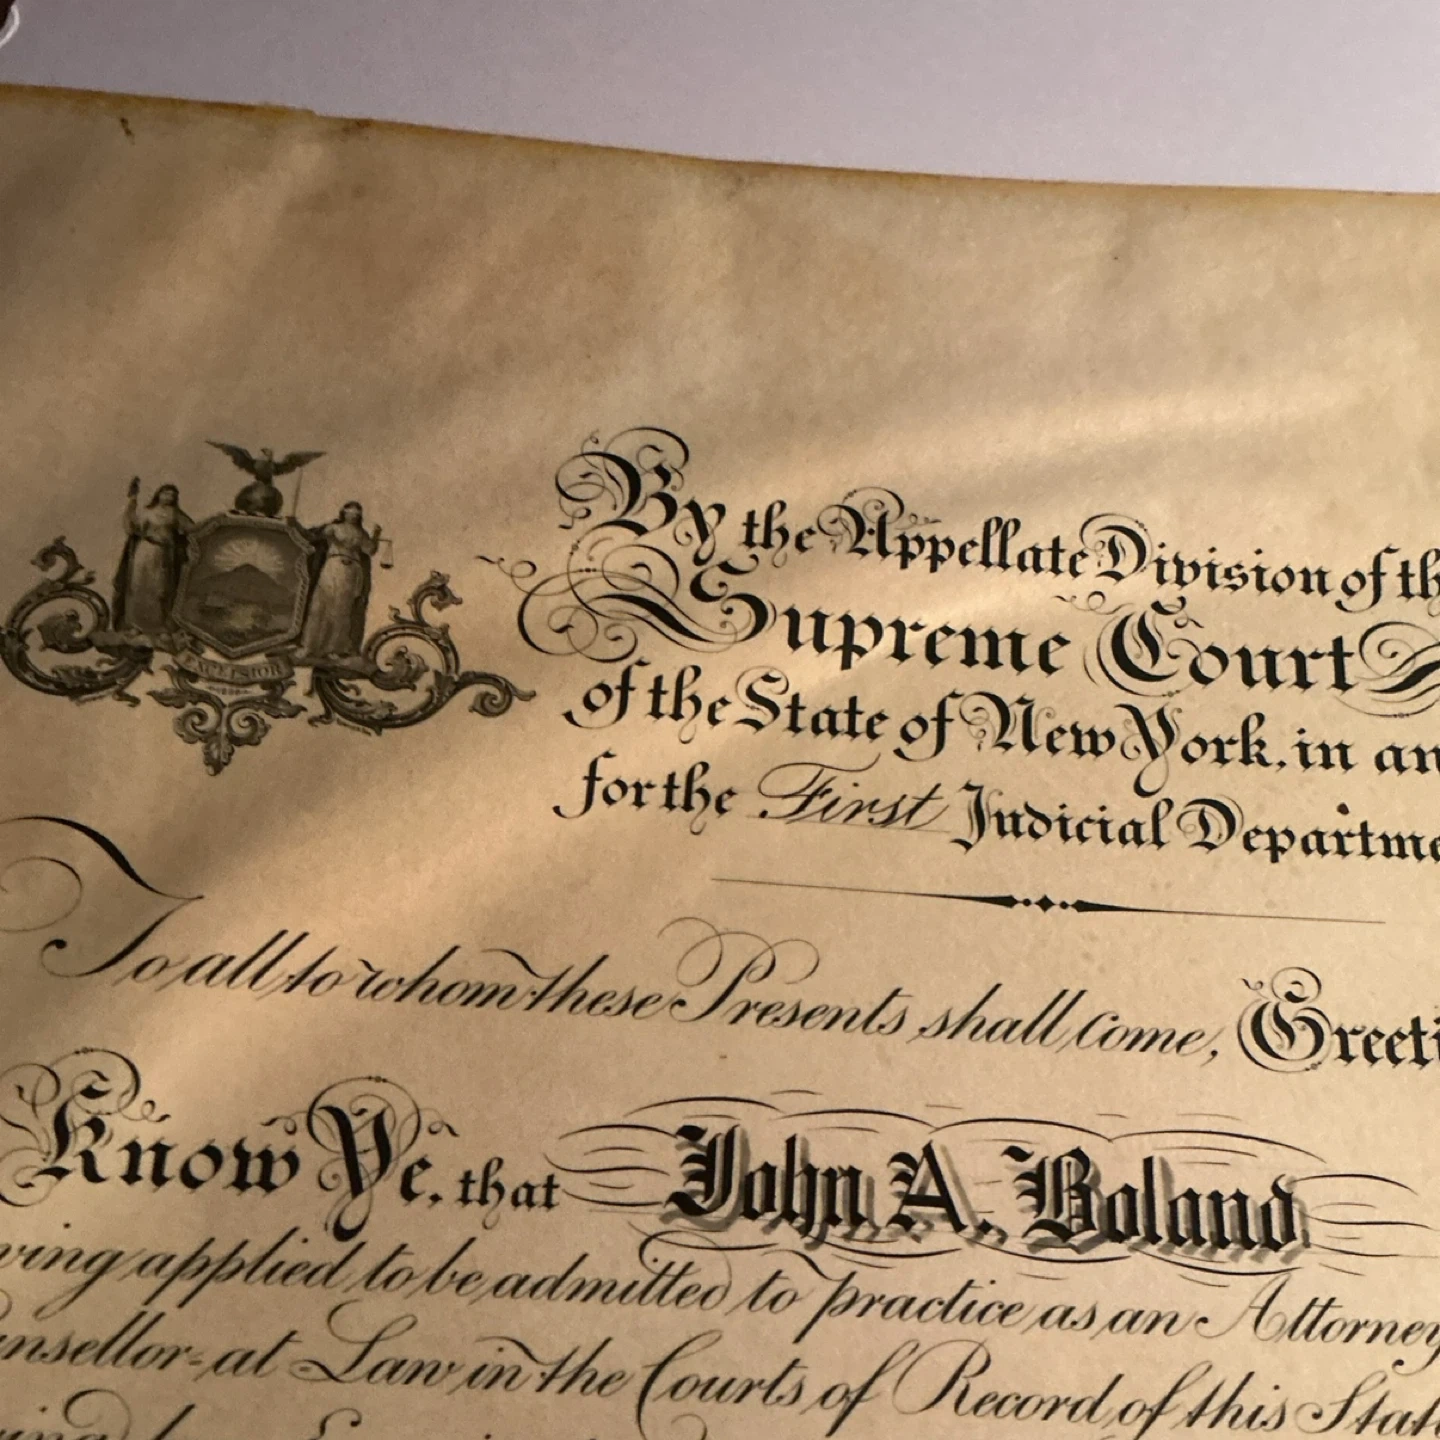 EXCELSIOR
By the Appellate Division of th
Supreme Court
of the State of New York, in an
for the First Judicial Departme
To all to whom these Presents shall Come, Greeti
Know Ye, that John A. Boland
ving applied to be admitted to practice as an Attorney
unsellor-at Law in the Courts of Record of this Stat